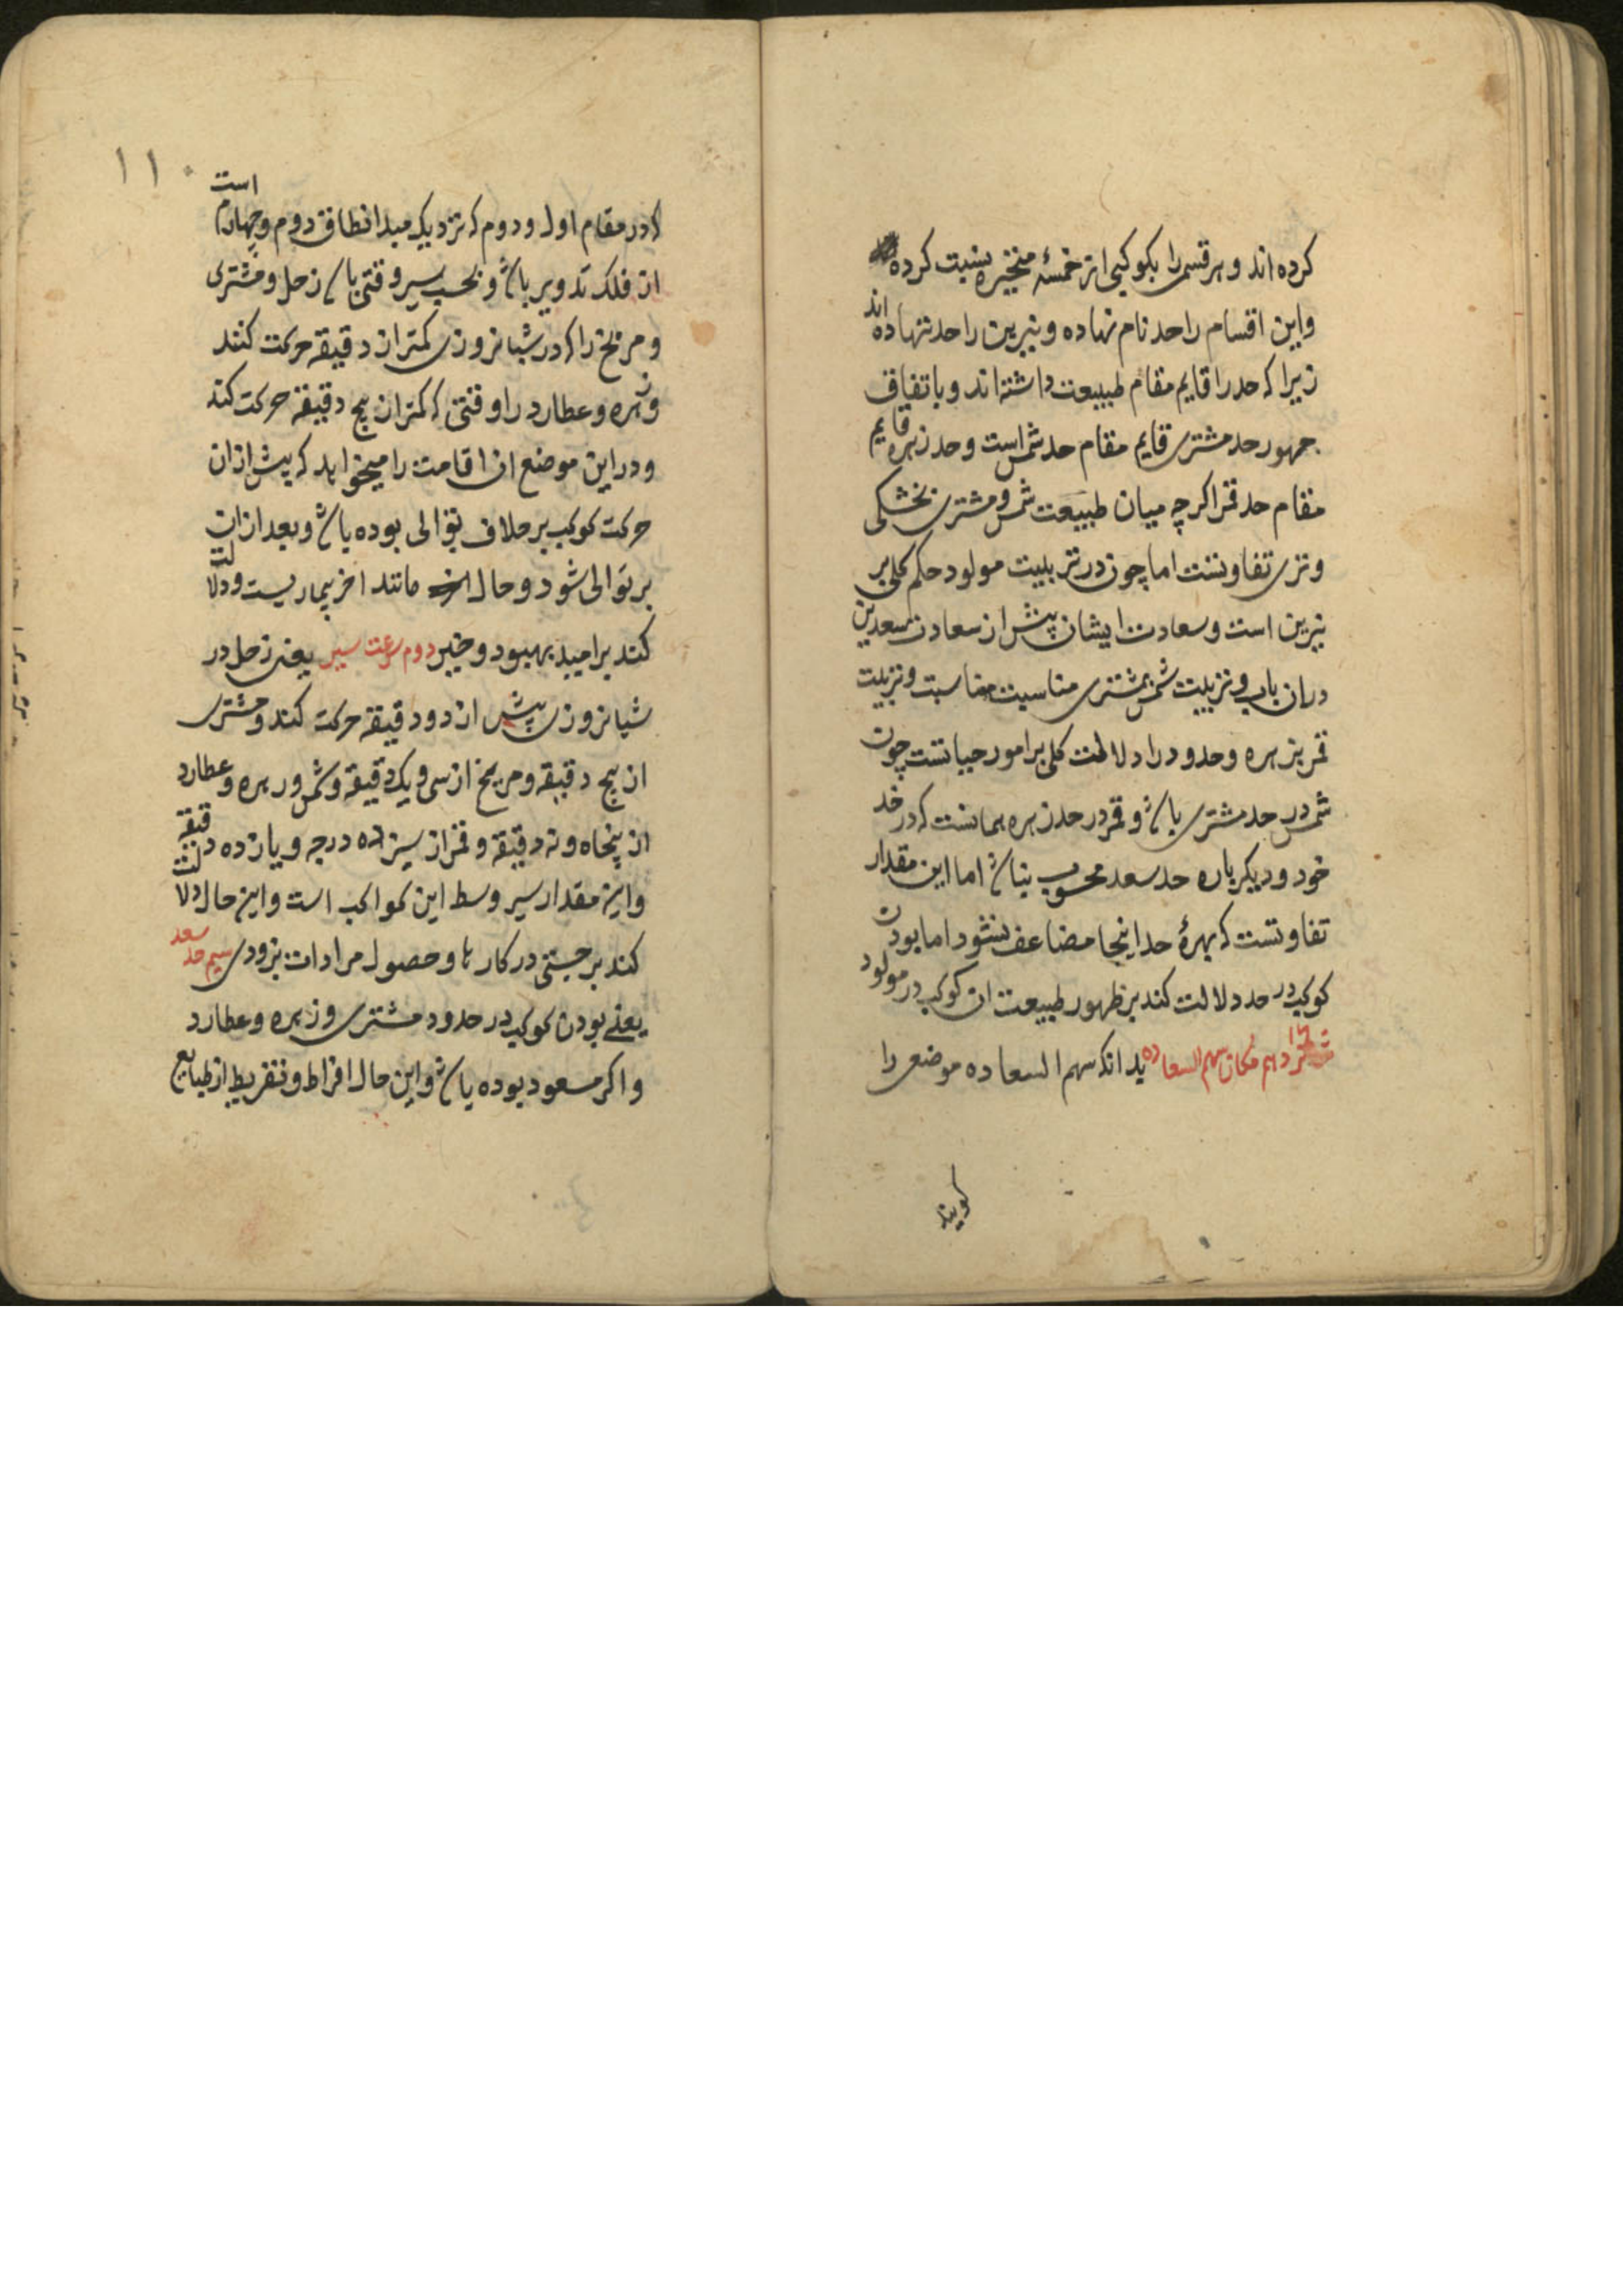 کرده اند و هر قسمی را بکوکبی از خمسهٔ متحیره نسبت کرده
و این اقسام را حد نام نهاده و نیرین را حد ننهاده اند
زیرا که حد را قایم مقام طبیعت داشته اند و باتفاق
جمهور حد مشتری قایم مقام حد شمس است و حد زهره قایم
مقام حد قمر اکرچه میان طبیعت شمس و مشتری بخشکی
و تری تفاوتست اما چون در تربیت مولود حکم کلی بر
نیرین است و سعادت ایشان پیش از سعادت سعدین
در ان باب و تربیت شمس بمشتری مناسبت و تربیت
قمر بزهره و حدود را دلالت کلی بر امور حیاتست چون
شمس در حد مشتری باشد و قمر در حد زهره همانست که در حد
خود و دیکر باره حد سعد محسوب نباشد اما این مقدار
تفاوتست که بهرهٔ حد اینجا مضاعف نشود اما بودن
کوکب در حد دلالت کند بر ظهور طبیعت ان کوکب در مولود
مکان سهم السعاده بدانکه سهم السعاده موضعی را
کویند
۱۱۰
که در مقام اول و دوم که نزدیک مبدا نطاق دوم و چهارم است
از فلک تدویر باشد و بحسب سیر وقتی باشد زحل و مشتری
و مریخ را که در شبانروزی کمتر از دقیقه حرکت کنند
و زهره و عطارد را وقتی که کمتر از پنج دقیقه حرکت کند
و در این موضع ان اقامت را میخواهد که پیش از ان
حرکت کوکب بر خلاف توالی بوده باشد و بعد از ان
بر توالی شود و حال مانند اخر بیماریست و دلالت
کند بر امید بهبود و خیر دوم سرعت سیر یعنی زحل در
شبانروزی بیش از دو دقیقه حرکت کند و مشتری
از پنج دقیقه و مریخ از سی و یک دقیقه و شمس و زهره و عطارد
از پنجاه و نه دقیقه و قمر از سیزده درجه و یازده دقیقه
و این مقدار سیر وسط این کواکب است و این حال دلالت
کند بر جستی در کارها و حصول مرادات بزودی سیم حد سعد
یعنی بودن کوکب در حدود مشتری و زهره و عطارد
و اکر مسعود بوده باشد و این حال افراط و تفریط از طبایع